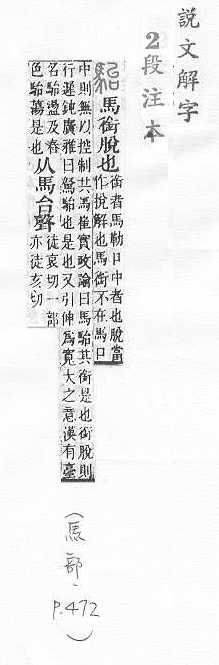 說文解字
2段注本
駘馬銜脫也
銜者馬勒口中者也脫當
作挩解也馬銜不在馬口
中則無以控制其馬崔寔政論曰馬駘其銜是也銜脫則
行遲鈍廣雅曰駑駘也是也又引伸爲寬大之意漢有臺
名駘盪及春
色駘蕩是也
从馬台聲
徒哀切一部
亦徒亥切
(馬部,
P.472)